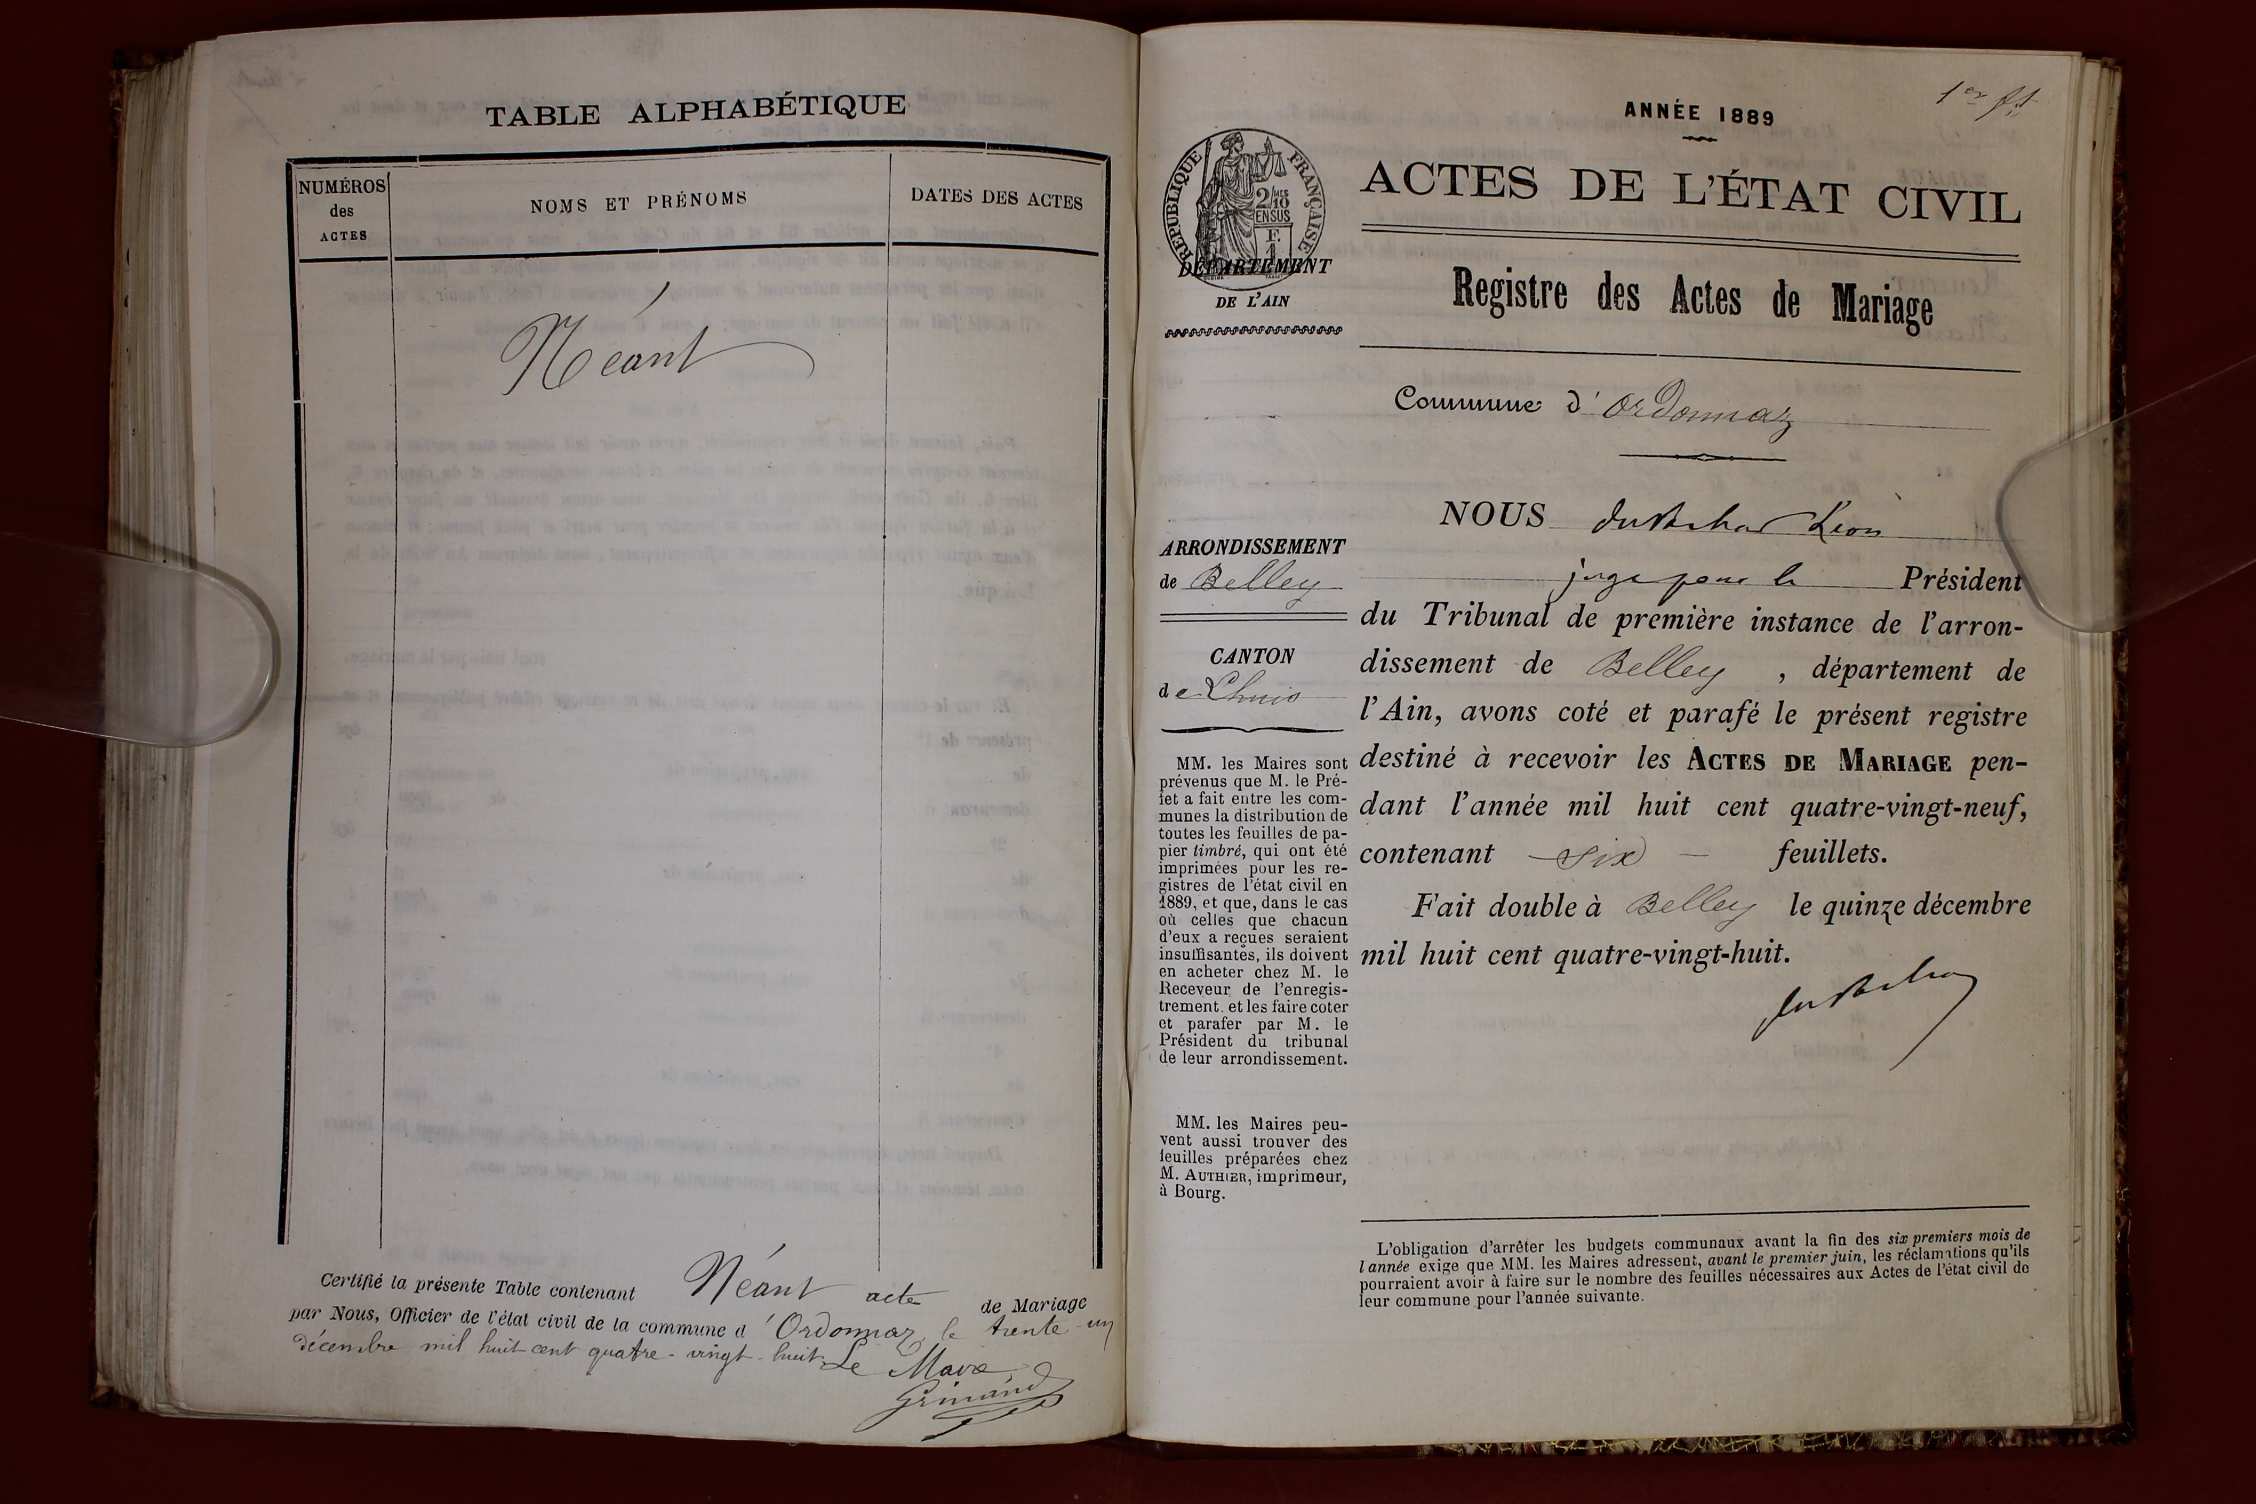 TABLE ALPHABÉTIQUE
NUMÉROS
des
ACTES
NOMS ET PRÉNOMS
DATES DES ACTES
Néant
Certifié la présente Table contenant Néant acte de Mariage
par Nous, Officier de l'état civil de la commune d'Ordonnaz, le trente-un
décembre mil huit cent quatre-vingt-huit Le Maire
1er
ANNÉE 1889
RÉPUBLIQUE FRANÇAISE
2/10 MES
EN SUS
F.
1
ACTES DE L'ÉTAT CIVIL
DÉPARTEMENT
DE L'AIN
Registre des Actes de Mariage
Commune d'Ordonnaz
ARRONDISSEMENT
de Belley
CANTON
de Lhuis
MM. les Maires sont
prévenus que M. le Pré-
fet a fait entre les com-
munes la distribution de
toutes les feuilles de pa-
pier timbré, qui ont été
imprimées pour les re-
gistres de l'état civil en
1889, et que, dans le cas
où celles que chacun
d'eux a reçues seraient
insuffisantes, ils doivent
en acheter chez M. le
Receveur de l'enregis-
trement. et les faire coter
et parafer par M. le
Président du tribunal
de leur arrondissement.
MM. les Maires peu-
vent aussi trouver des
feuilles préparées chez
M. AUTHIER, imprimeur,
à Bourg.
NOUS Léon
juge pour le Président
du Tribunal de première instance de l'arron-
dissement de Belley, département de
l'Ain, avons coté et parafé le présent registre
destiné à recevoir les ACTES DE MARIAGE pen-
dant l'année mil huit cent quatre-vingt-neuf,
contenant six feuillets.
Fait double à Belley le quinze décembre
mil huit cent quatre-vingt-huit.
L'obligation d'arrêter les budgets communaux avant la fin des six premiers mois de
l'année exige que MM. les Maires adressent, avant le premier juin, les réclamations qu'ils
pourraient avoir à faire sur le nombre des feuilles nécessaires aux Actes de l'état civil de
leur commune pour l'année suivante.